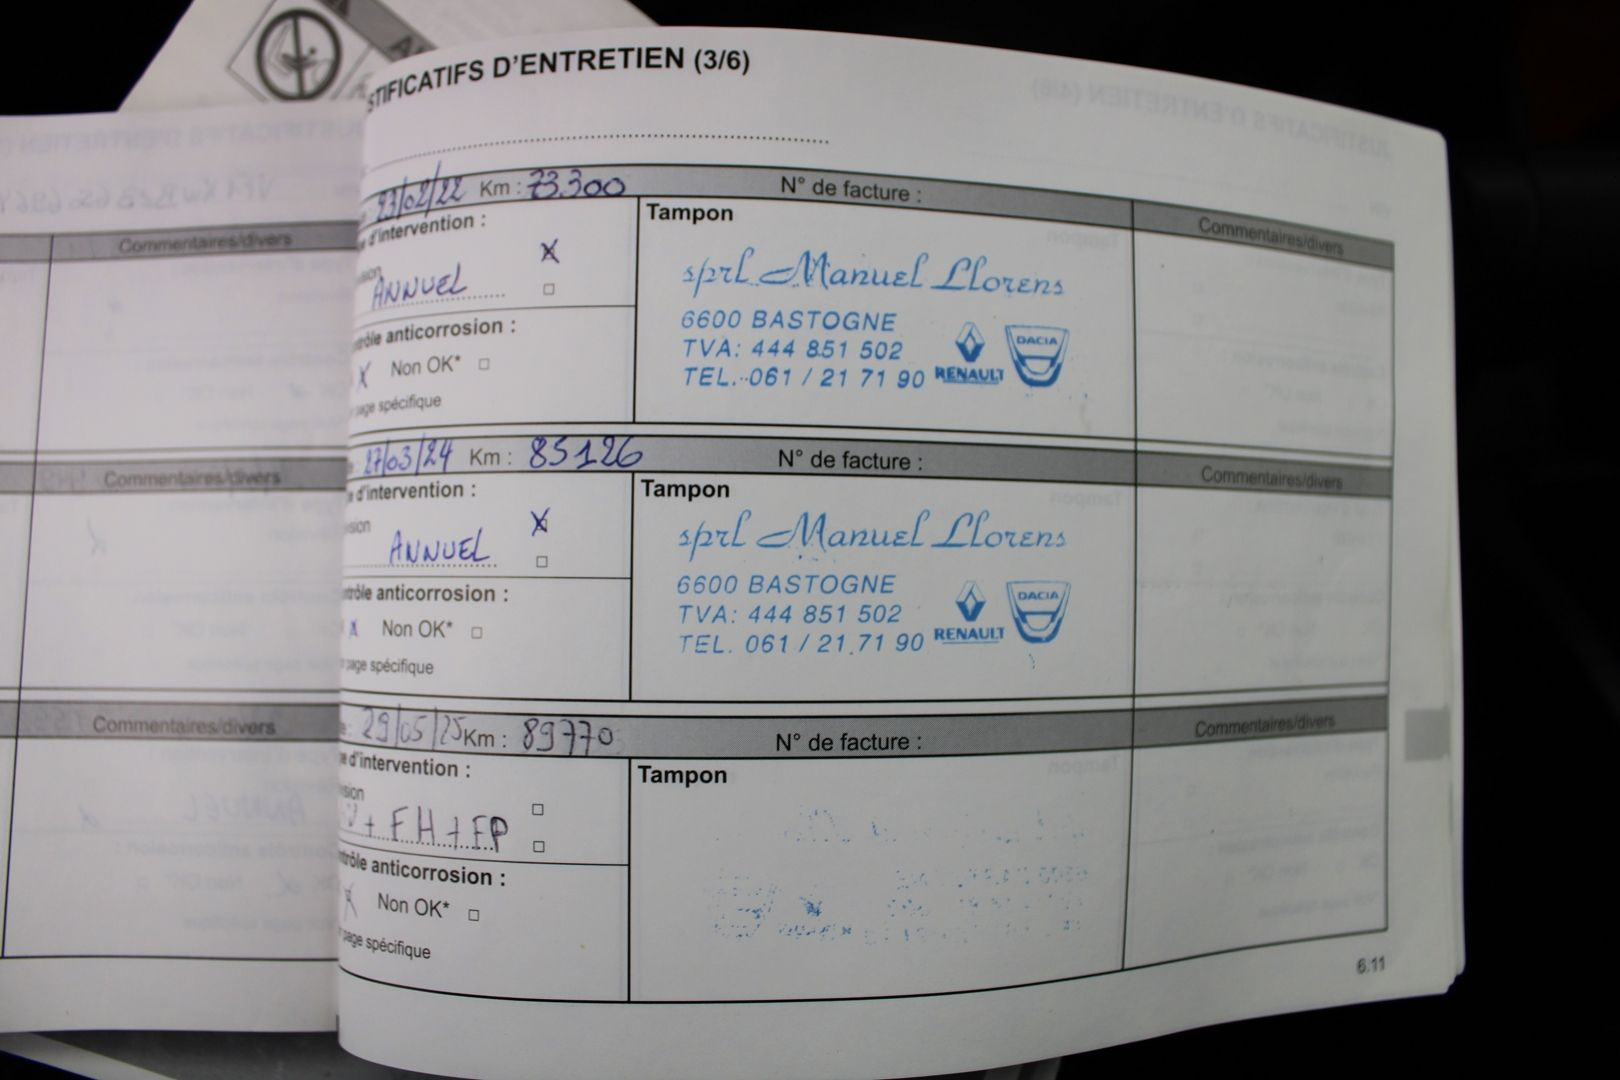 STIFICATIFS D'ENTRETIEN (3/6)
23/02/22 Km : 73.300 N° de facture :
d'intervention :
ANNUEL
Tampon
sprl Manuel Llorens
6600 BASTOGNE
TVA: 444 851 502
TEL. 061 / 21 71 90
RENAULT
DACIA
Commentaires/divers
trôle anticorrosion :
X Non OK* □
page spécifique
27/03/24 Km : 85126 N° de facture :
d'intervention :
ANNUEL
Tampon
sprl Manuel Llorens
6600 BASTOGNE
TVA: 444 851 502
TEL. 061 / 21.71 90
RENAULT
DACIA
Commentaires/divers
Commentaires/divers
trôle anticorrosion :
X Non OK* □
page spécifique
29/05/25 Km : 89770 N° de facture :
d'intervention :
+ FH + FP
Tampon
Commentaires/divers
Commentaires/divers
trôle anticorrosion :
X Non OK* □
page spécifique
Commentaires/divers
6.11